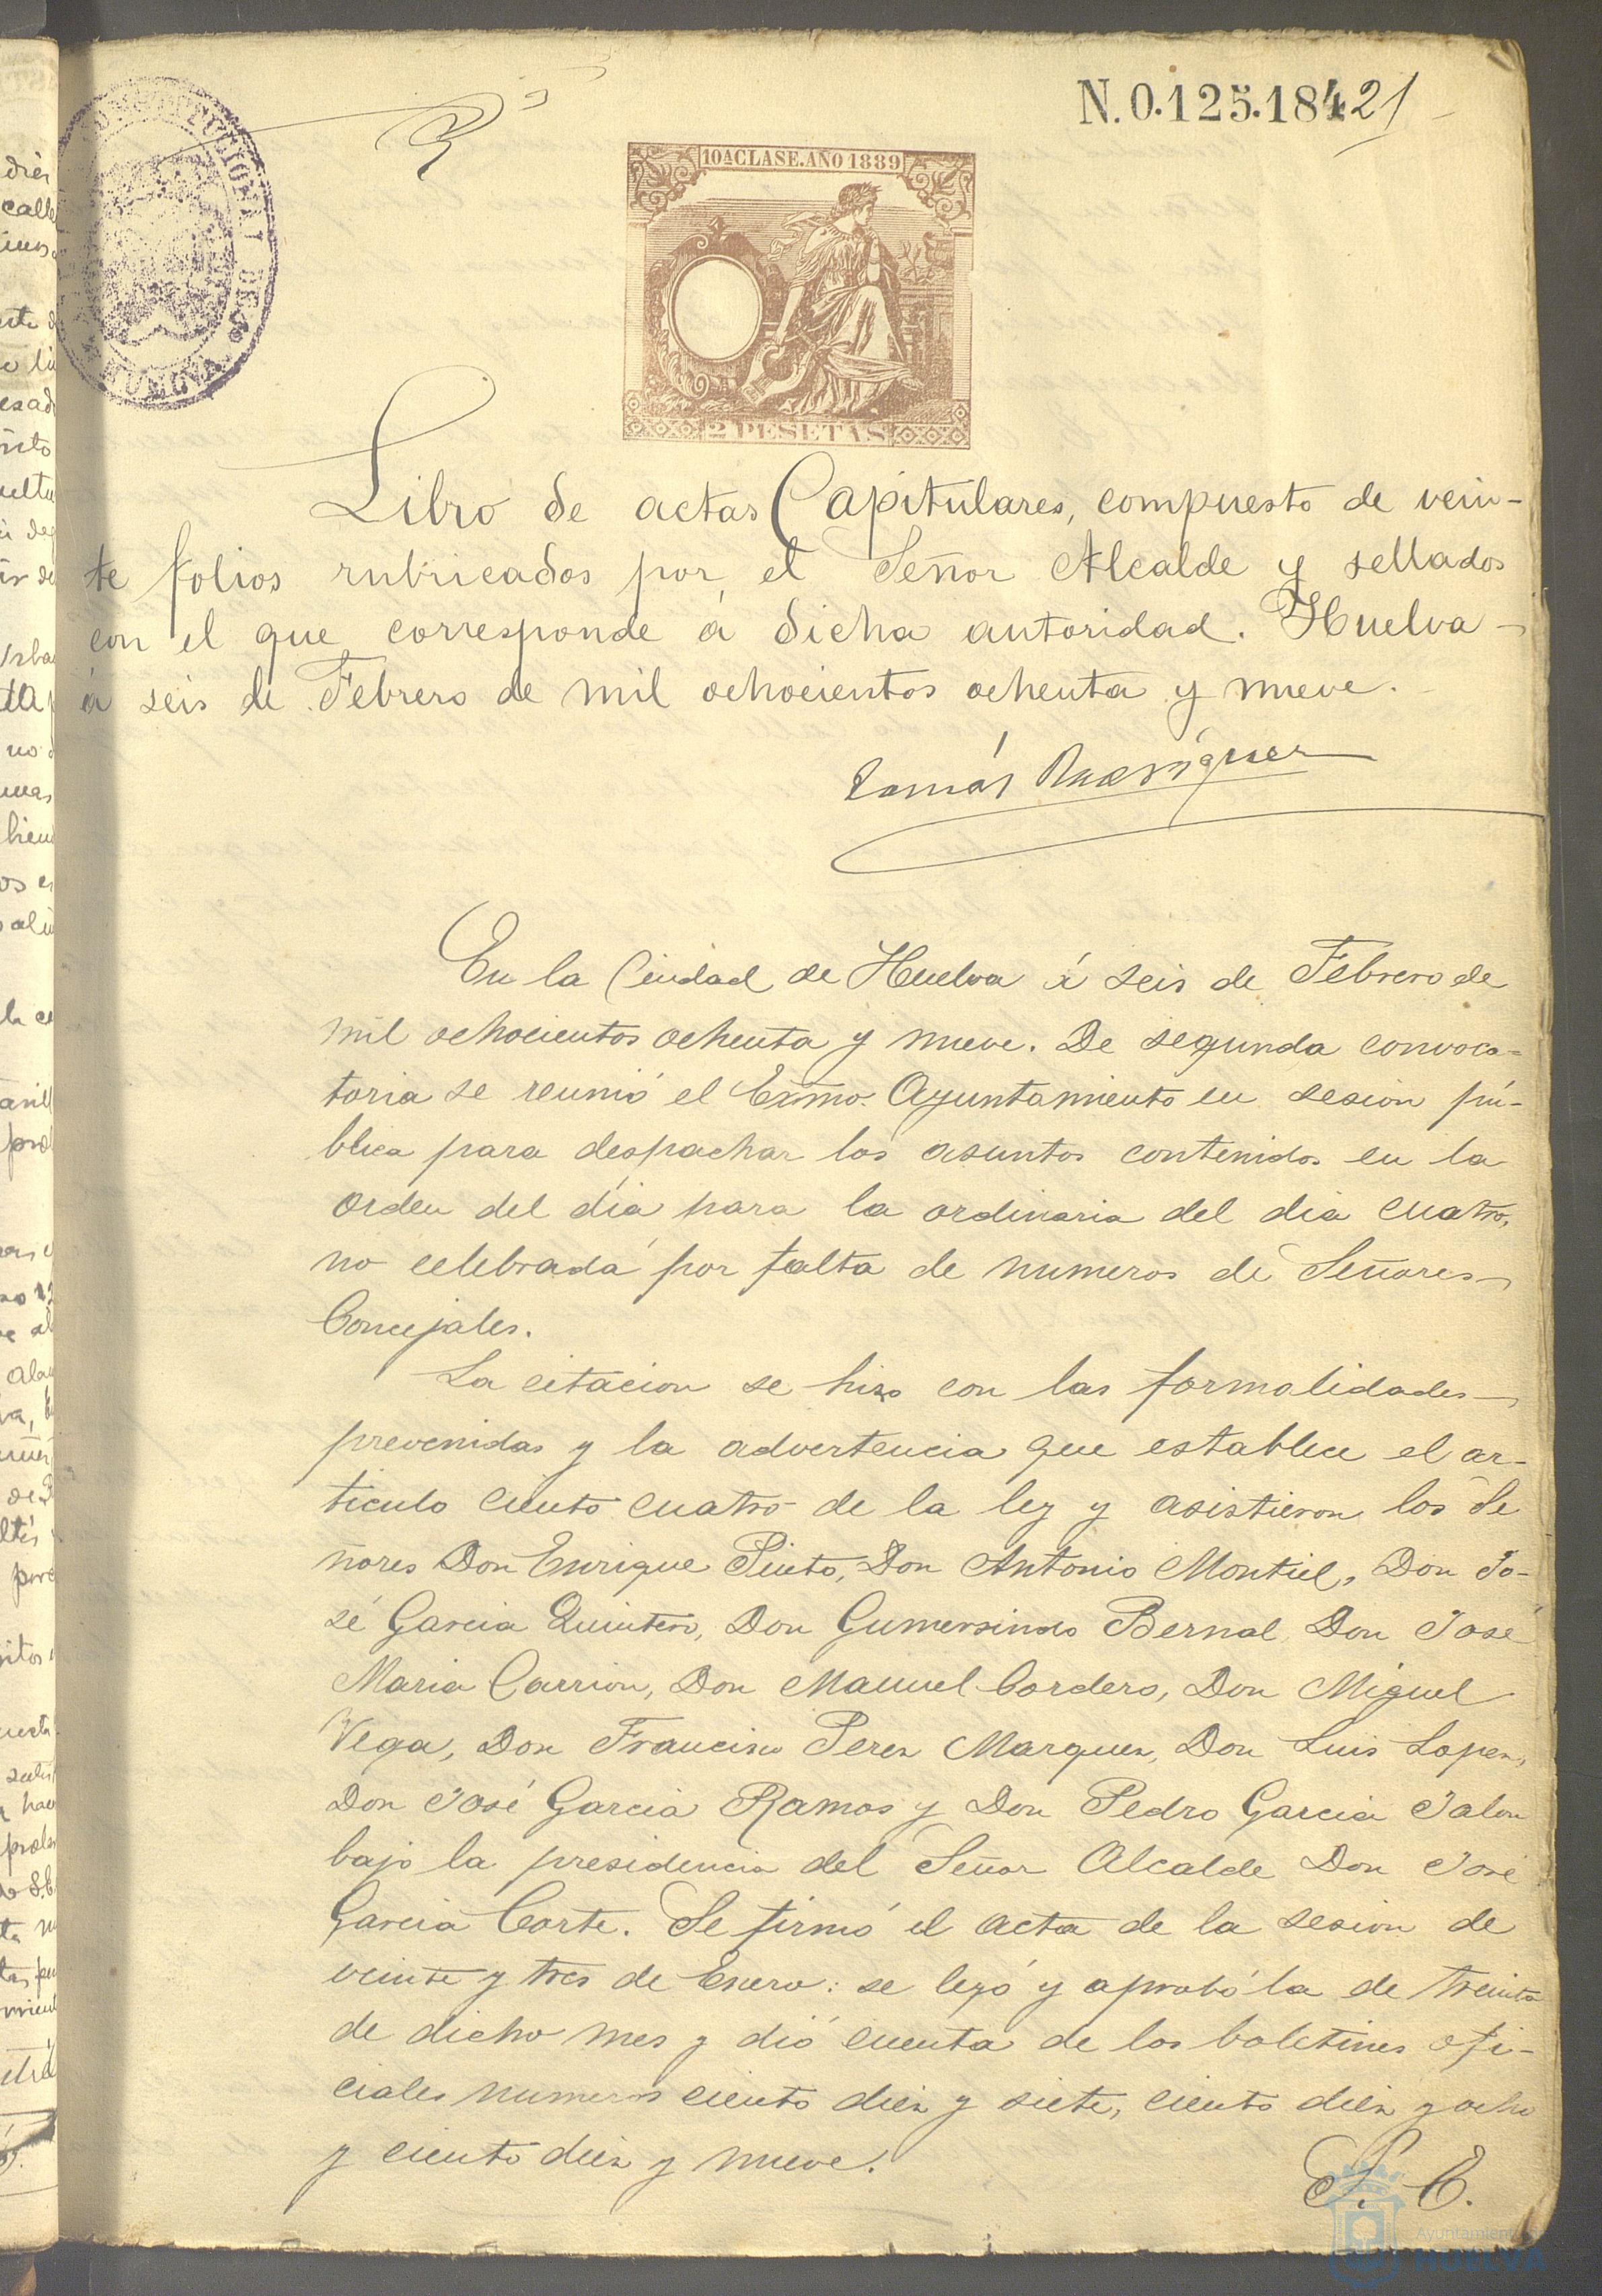 N.0.125.18421
10ª CLASE. AÑO 1889
CONSTITUCIONAL DE
HUELVA
2 PESETAS
Libro de actas Capitulares, compuesto de vein-
te folios rubricados por el Señor Alcalde y sellados
con el que corresponde á dicha autoridad. Huelva
á seis de Febrero de mil ochocientos ochenta y nueve.
Tomás Rodríguez
En la Ciudad de Huelva á seis de Febrero de
mil ochocientos ochenta y nueve. De segunda convoca=
toria se reunió el Exmo. Ayuntamiento en sesion pú-
blica para despachar los asuntos contenidos en la
orden del día para la ordinaria del dia cuatro,
no celebrada por falta de numeros de Señores
Concejales.
La citacion se hizo con las formalidades
prevenidas y la advertencia que establece el ar-
ticulo ciento cuatro de la ley y asistieron los Se
ñores Don Enrique Pinto, Don Antonio Montiel, Don Jo-
sé Garcia Quintero, Don Gumersindo Bernal, Don José
Maria Carrion, Don Manuel Cordero, Don Miguel
Vega, Don Francisco Perez Marquez, Don Luis Lopez,
Don José Garcia Ramos y Don Pedro Garcia Jalon
bajo la presidencia del Señor Alcalde Don José
Garcia Corte. Se firmó el acta de la sesion de
veinte y tres de Enero: se leyó y aprobó la de treinta
de dicho mes y dió cuenta de los boletines ofi-
ciales numeros ciento diez y siete, ciento diez y ocho
y ciento diez y nueve.
Ayuntamiento
HUELVA